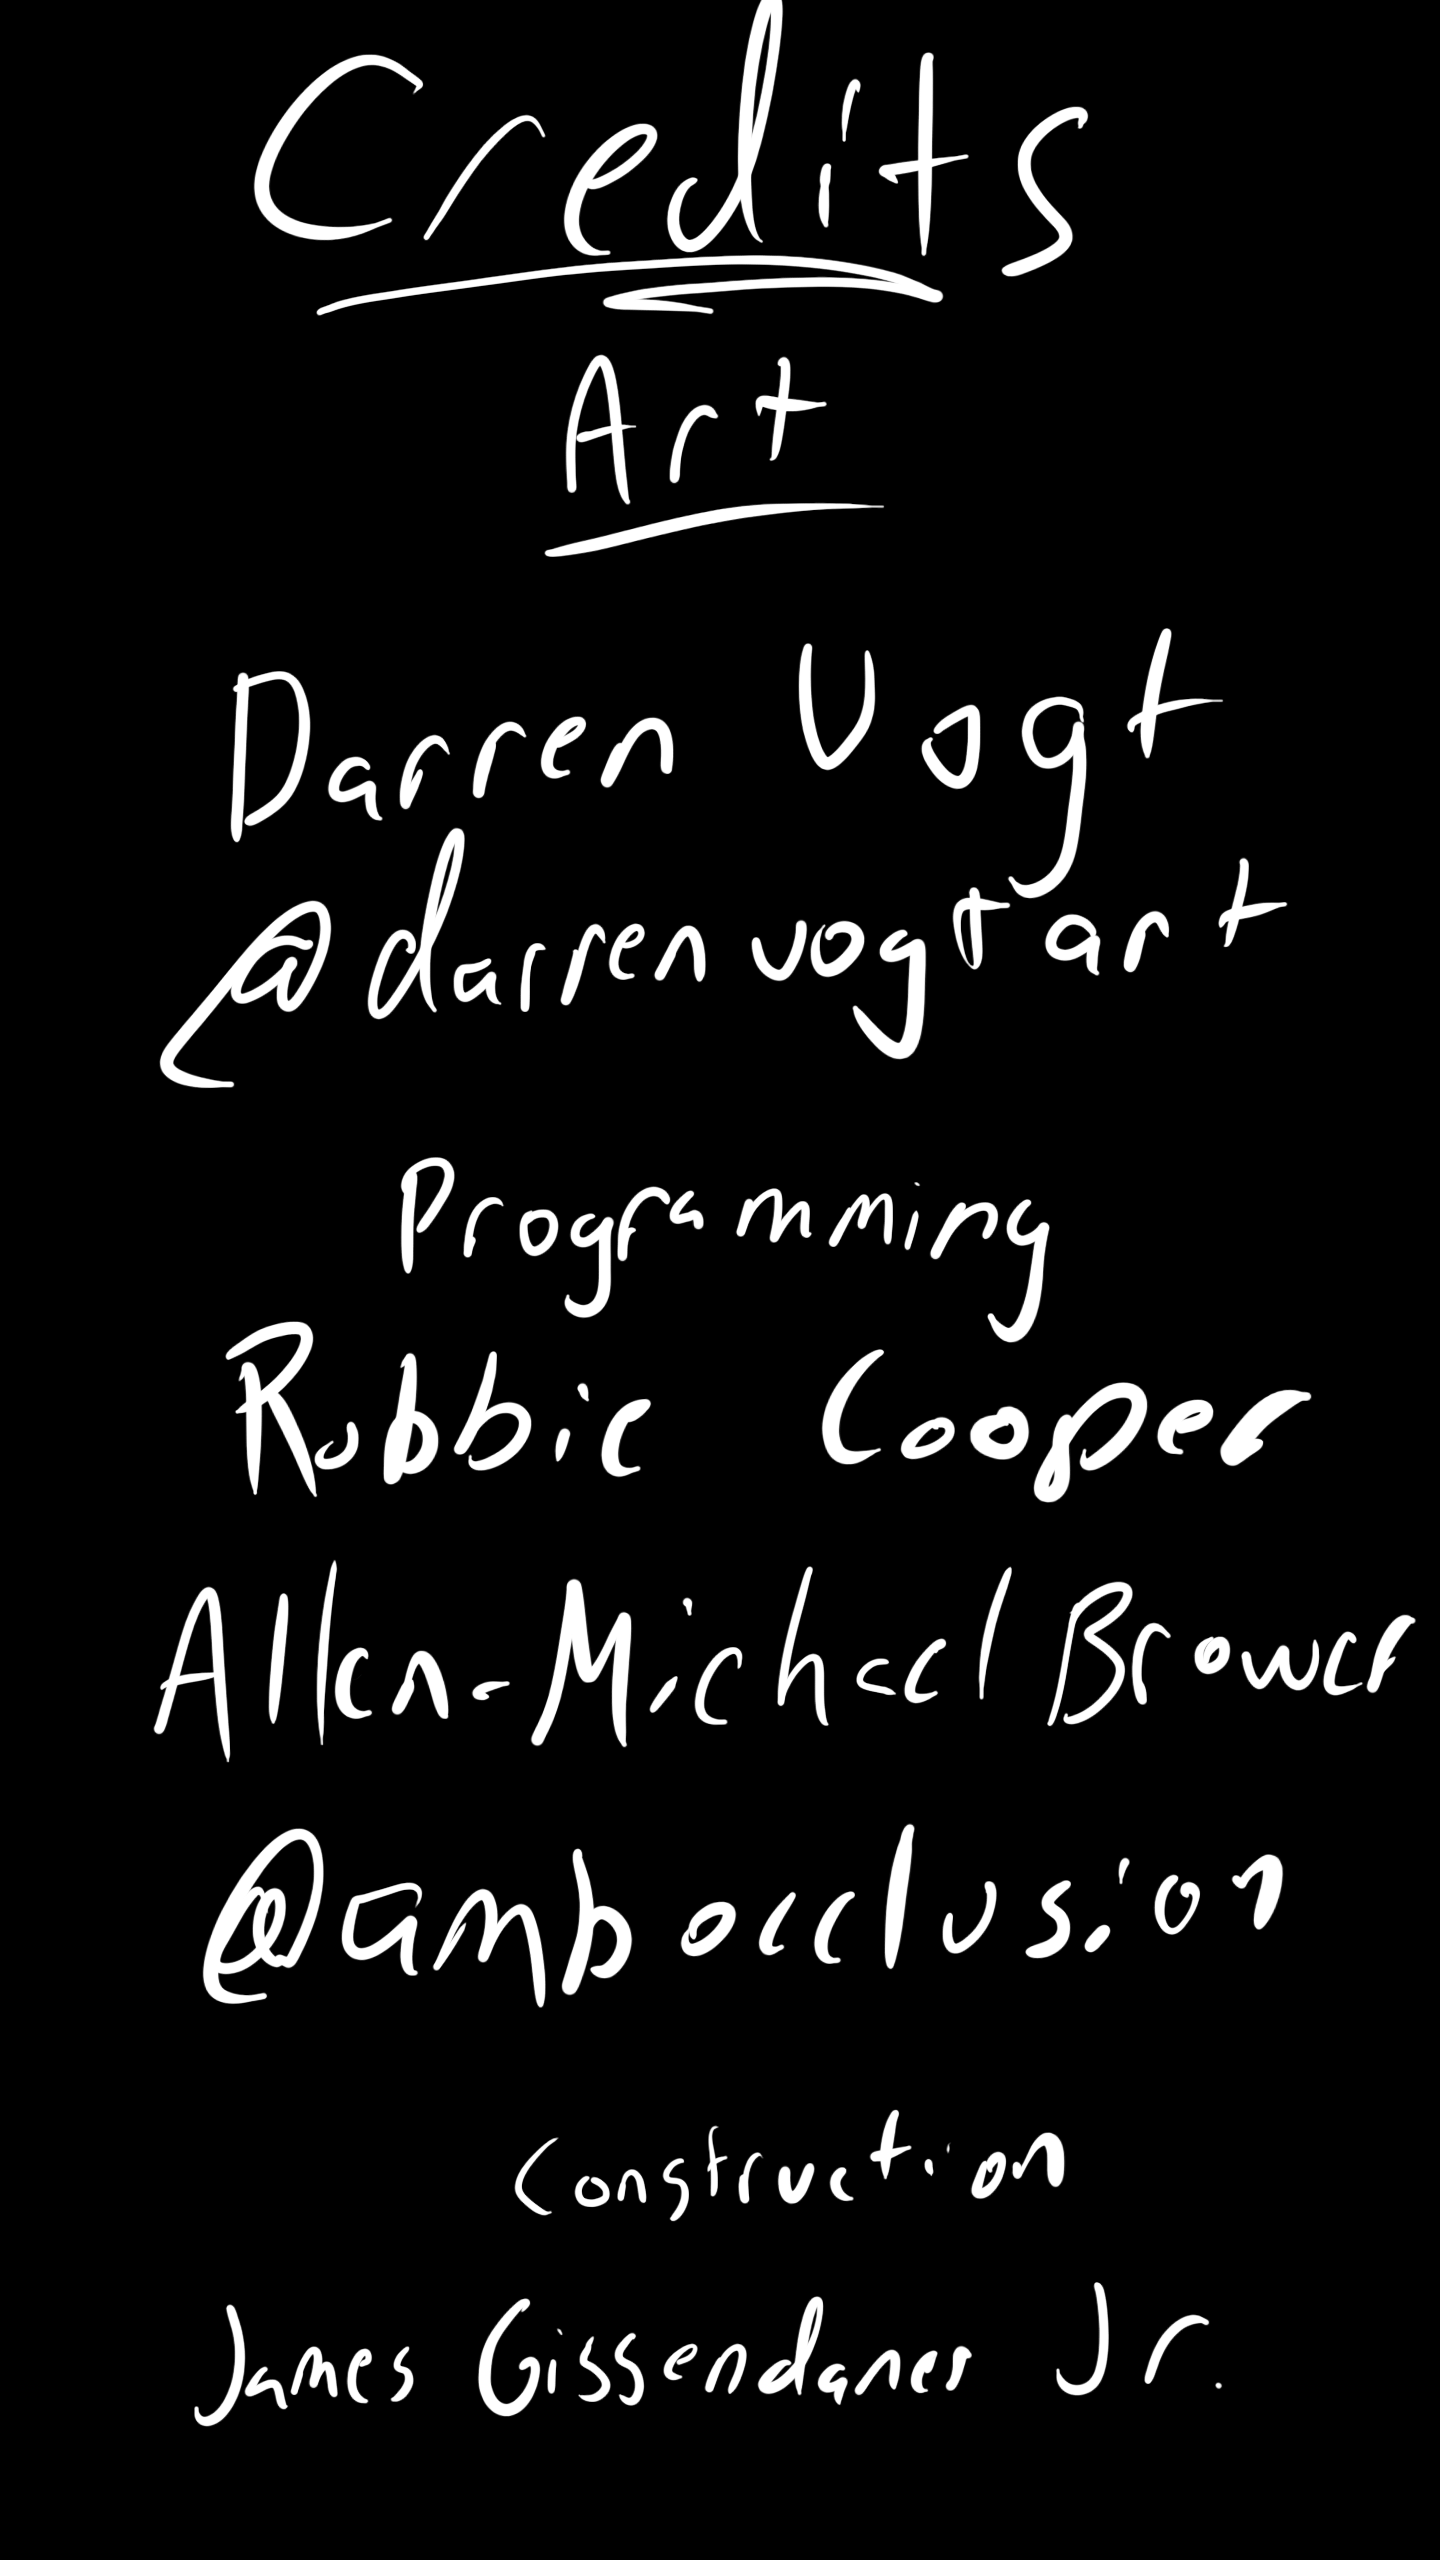 Credits
Art
Darren Vogt
@darrenvogtart
Programming
Robbie Cooper
Allen-Michael Brower
@ambocclusion
Construction
James Gissendaner Jr.